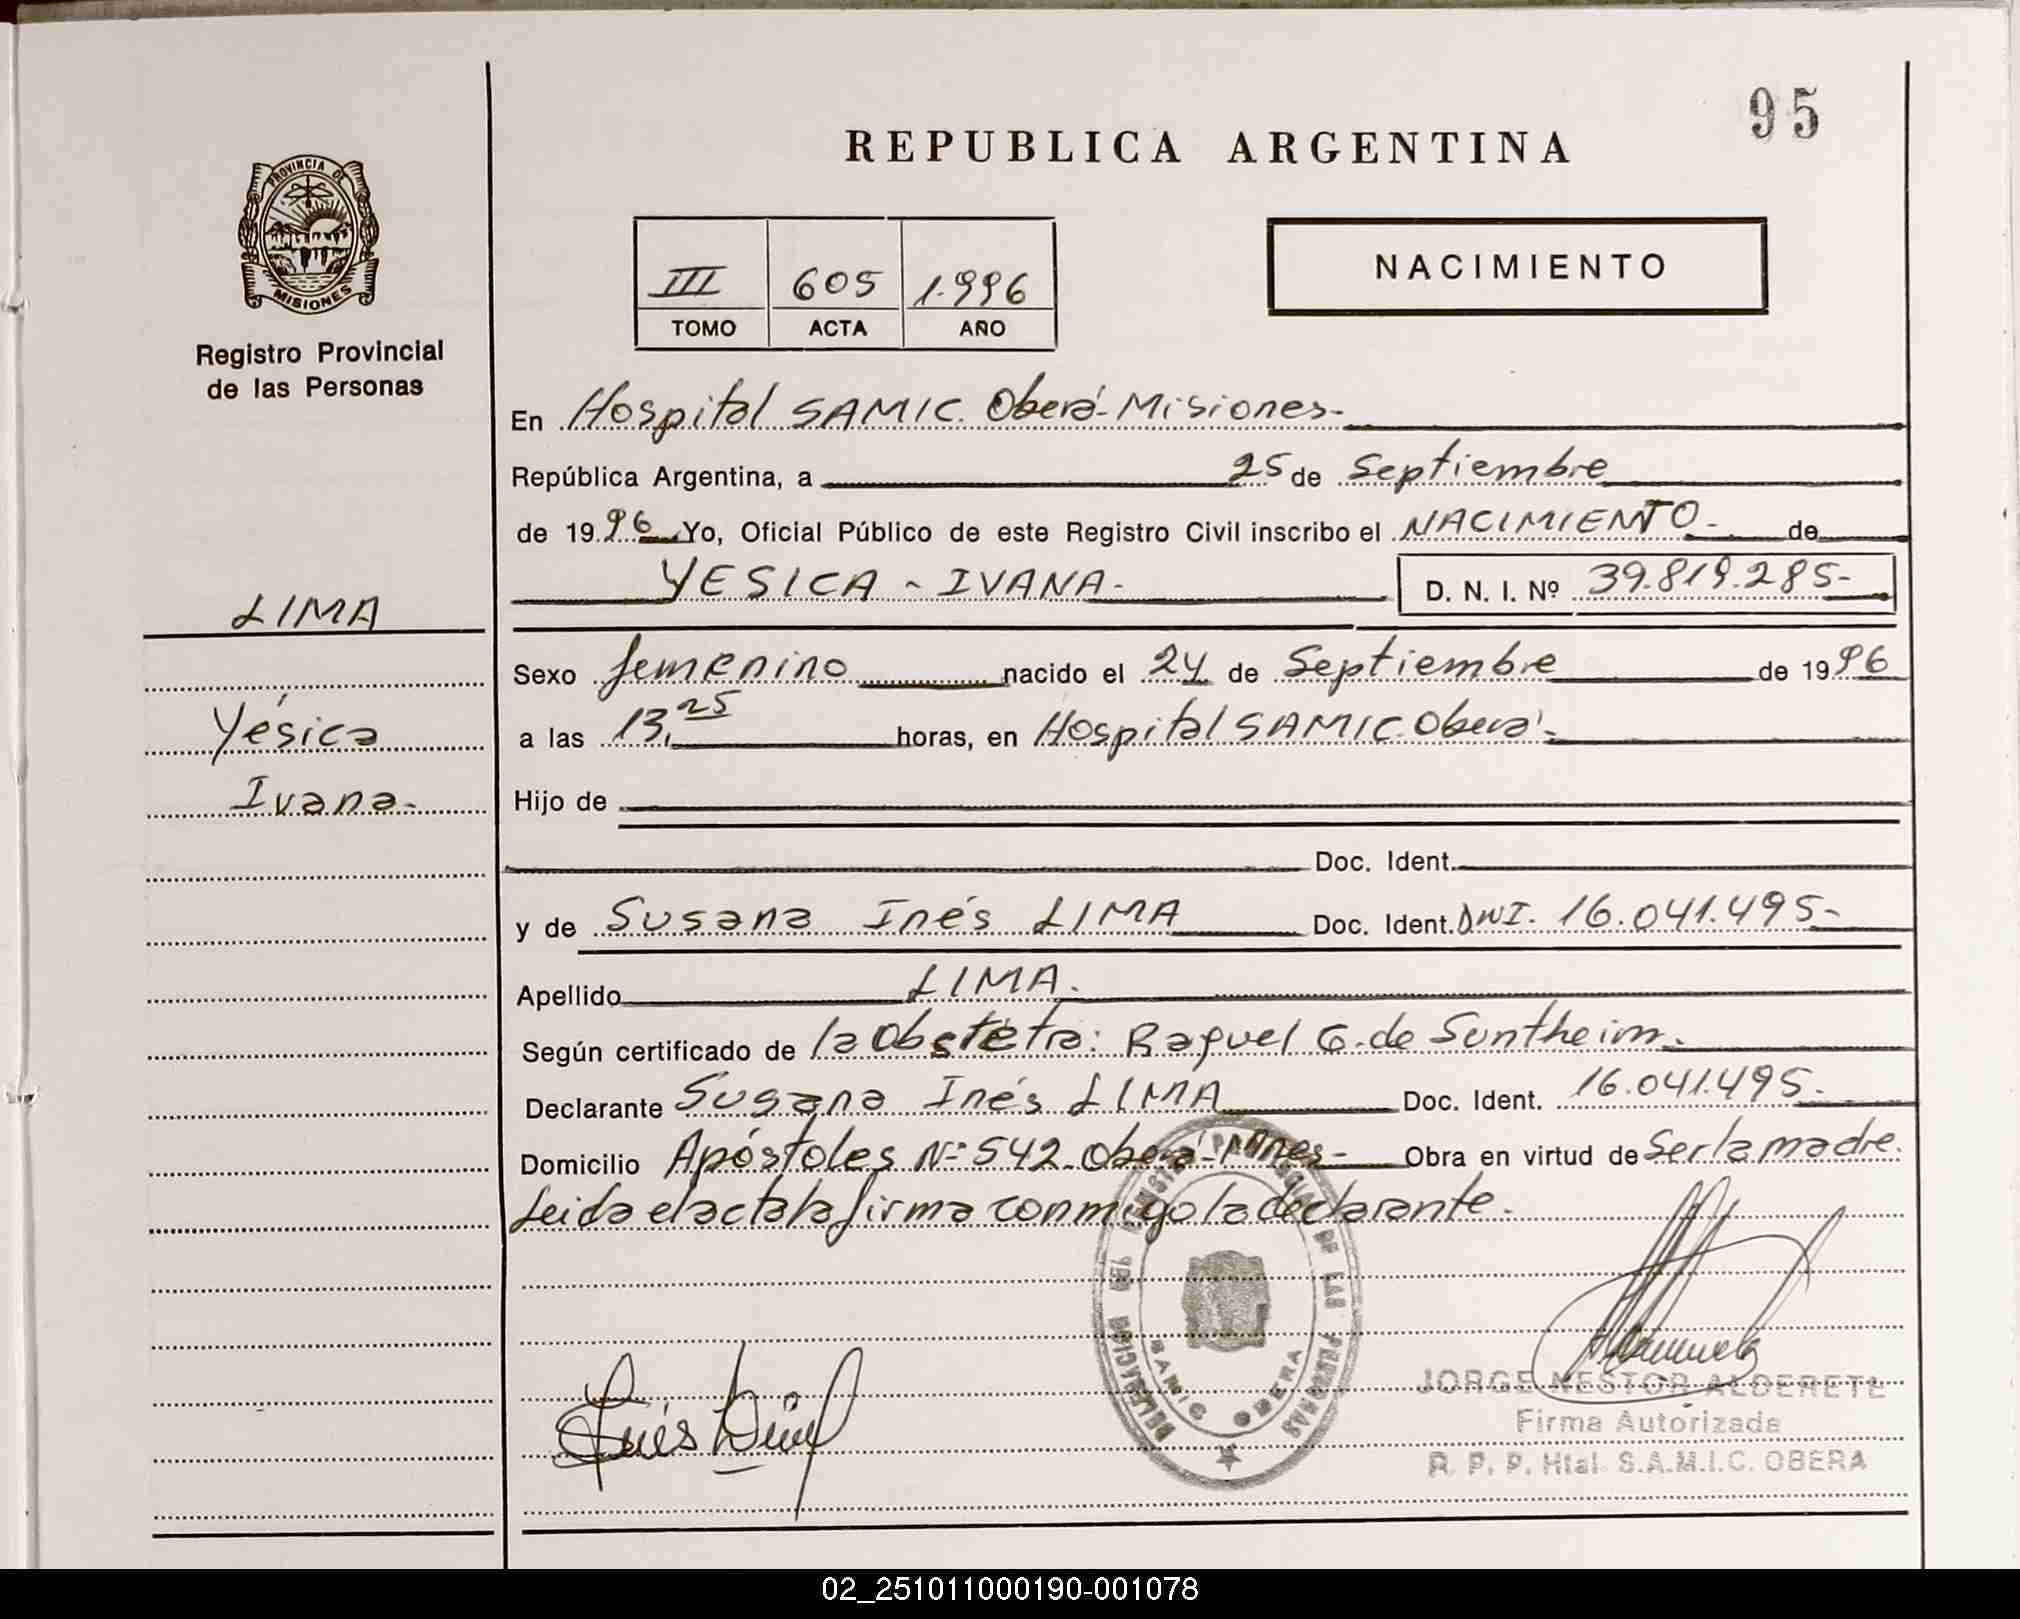 95
REPUBLICA ARGENTINA
PROVINCIA DE
MISIONES
Registro Provincial
de las Personas
III 605 1.996
TOMO ACTA AÑO
NACIMIENTO
En Hospital SAMIC. Oberá-Misiones-
República Argentina, a 25 de Septiembre
de 1996 Yo, Oficial Público de este Registro Civil inscribo el NACIMIENTO- de
YESICA - IVANA-
D. N. I. Nº 39.819.285-
LIMA
Yésica
Ivana-
Sexo femenino nacido el 24 de Septiembre de 1996
a las 13,25 horas, en Hospital SAMIC. Oberá-
Hijo de
Doc. Ident.
y de Susana Inés LIMA Doc. Ident. DNI. 16.041.495-
Apellido LIMA.
Según certificado de la Obstétra: Raquel G. de Suntheim.
Declarante Susana Inés LIMA Doc. Ident. 16.041.495-
Domicilio Apóstoles Nº 542. Oberá-Mnes- Obra en virtud de Ser la madre.
Leida el acta la firma conmigo la declarante.
DELEGACION DEL REGISTRO PROVINCIAL DE LAS PERSONAS
SAMIC OBERA
Inés
JORGE NESTOR ALDERETE
Firma Autorizada
R. P. P. Htal. S.A.M.I.C. OBERA
02_251011000190-001078